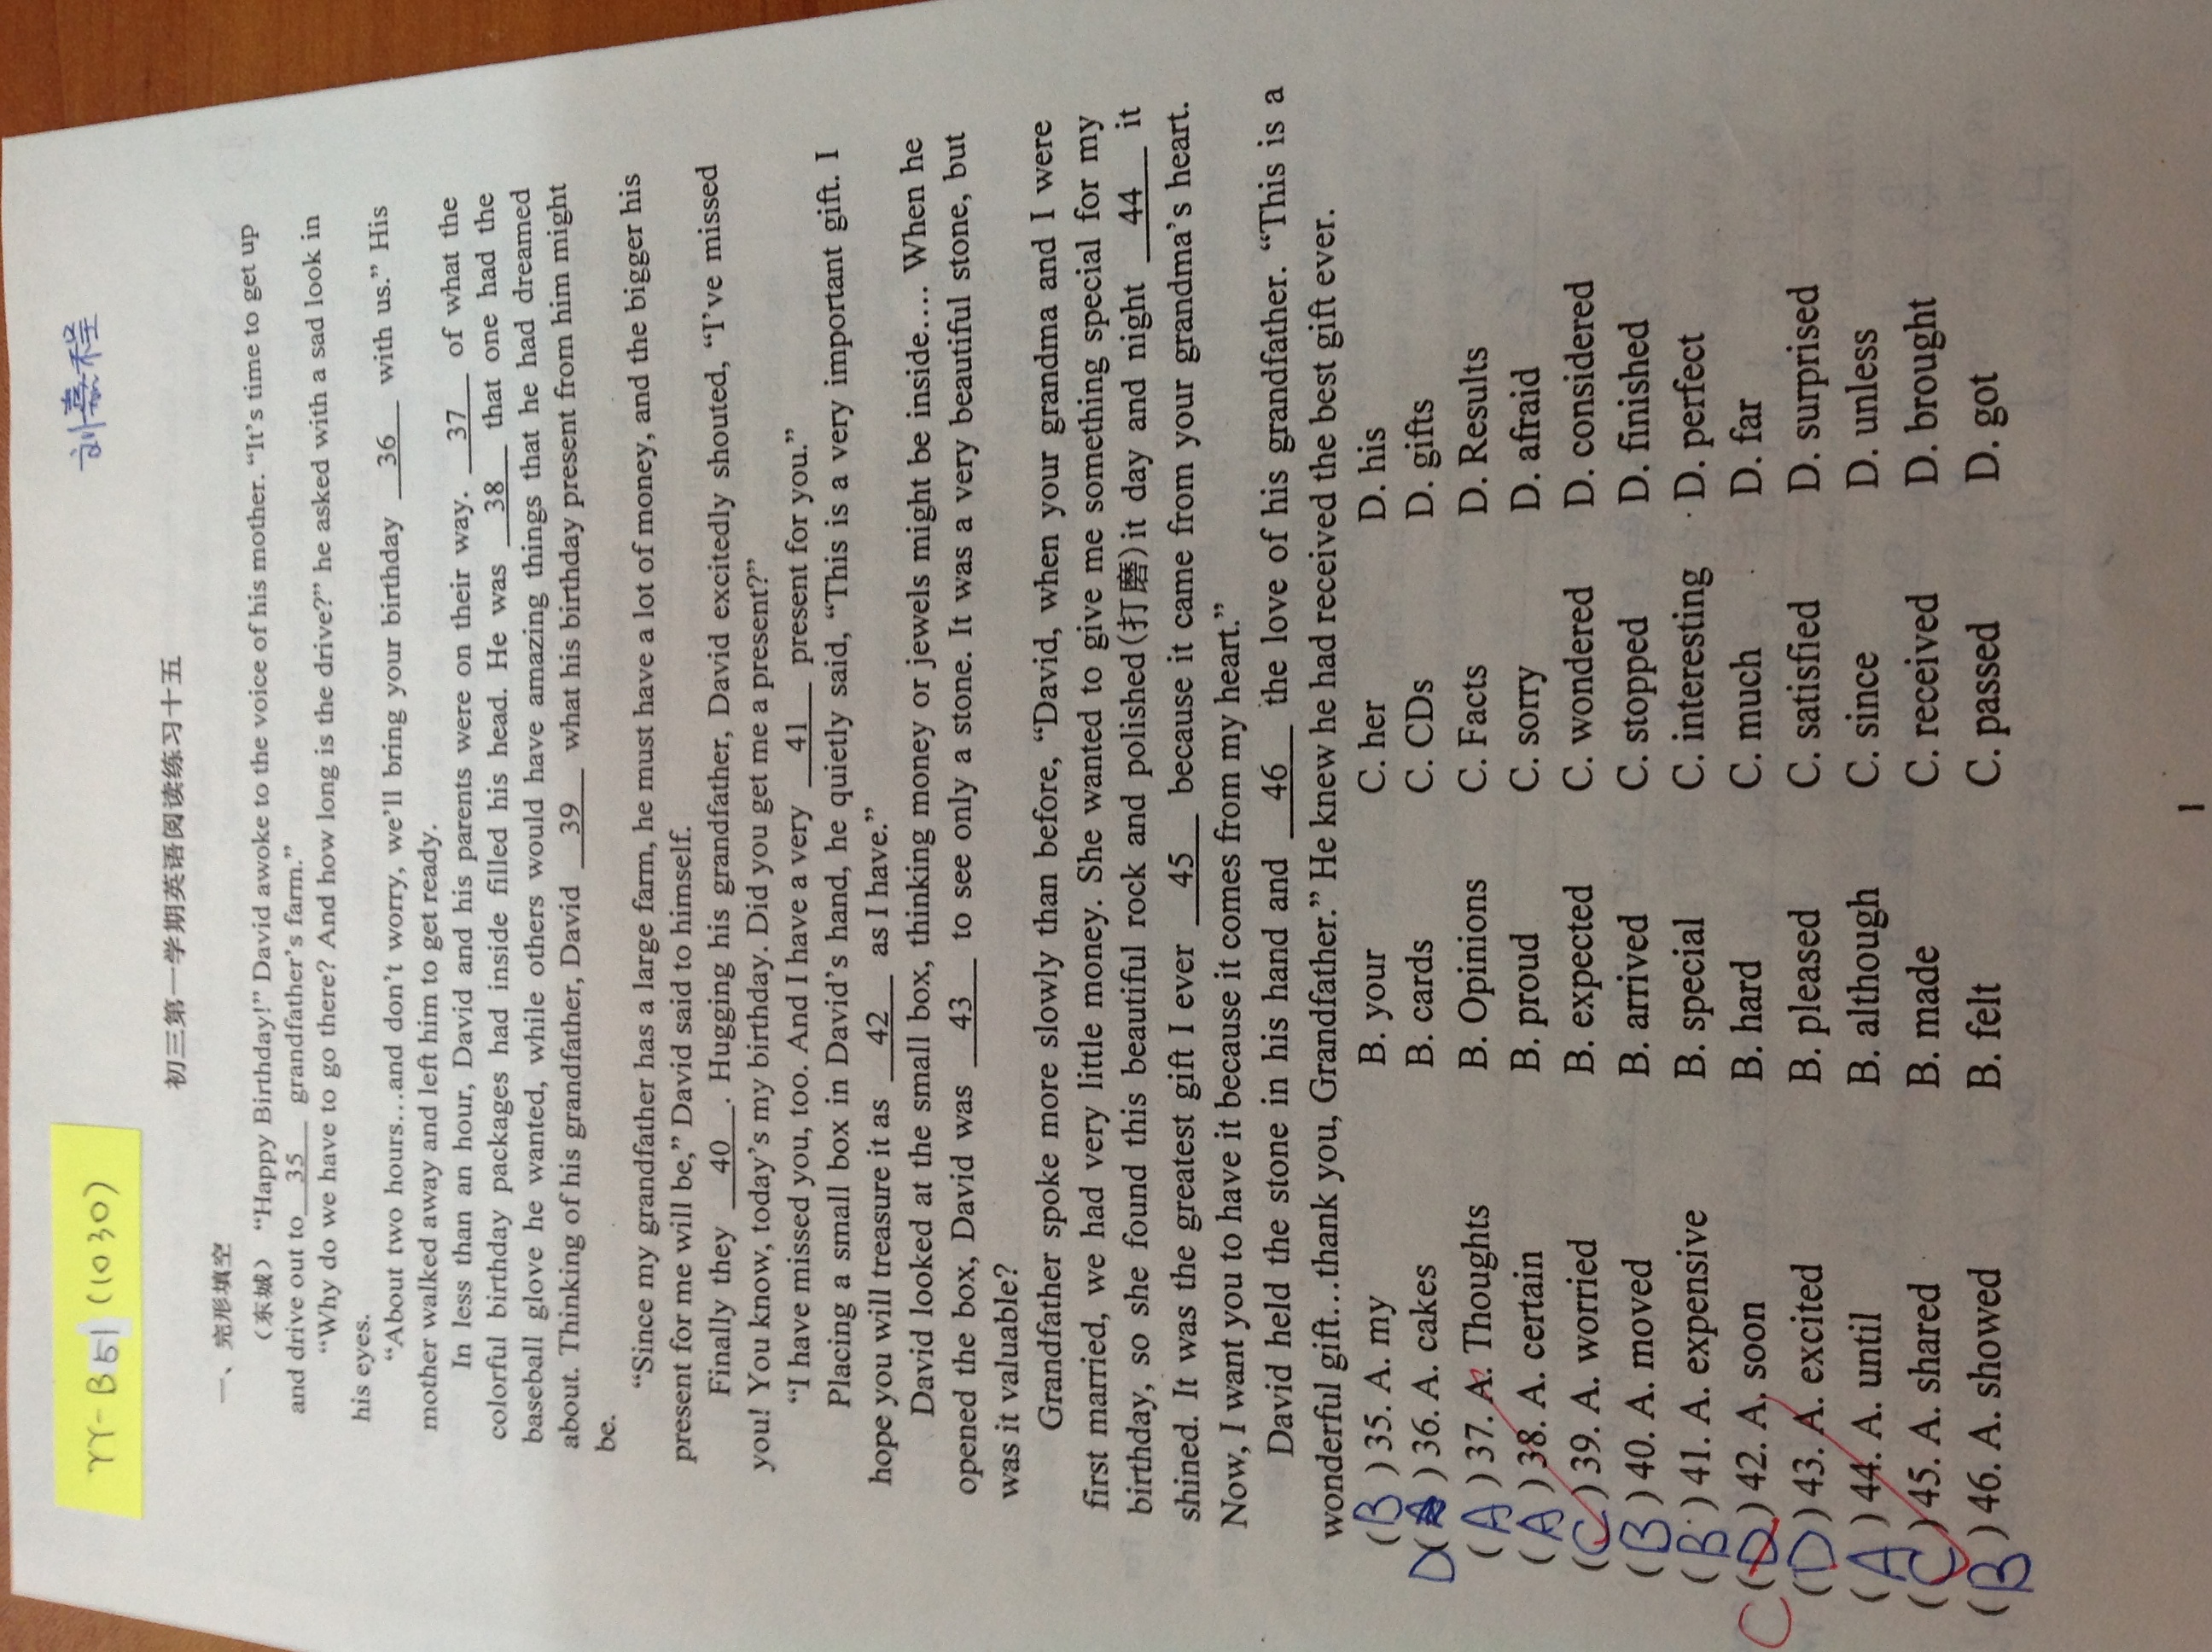 YY-B51 (1030)
刘嘉程
初三第一学期英语阅读练习十五
一、完形填空
（东城） “Happy Birthday!” David awoke to the voice of his mother. “It’s time to get up
and drive out to 35 grandfather’s farm.”
“Why do we have to go there? And how long is the drive?” he asked with a sad look in
his eyes.
“About two hours…and don’t worry, we’ll bring your birthday 36 with us.” His
mother walked away and left him to get ready.
In less than an hour, David and his parents were on their way. 37 of what the
colorful birthday packages had inside filled his head. He was 38 that one had the
baseball glove he wanted, while others would have amazing things that he had dreamed
about. Thinking of his grandfather, David 39 what his birthday present from him might
be.
“Since my grandfather has a large farm, he must have a lot of money, and the bigger his
present for me will be,” David said to himself.
Finally they 40 . Hugging his grandfather, David excitedly shouted, “I’ve missed
you! You know, today’s my birthday. Did you get me a present?”
“I have missed you, too. And I have a very 41 present for you.”
Placing a small box in David’s hand, he quietly said, “This is a very important gift. I
hope you will treasure it as 42 as I have.”
David looked at the small box, thinking money or jewels might be inside…. When he
opened the box, David was 43 to see only a stone. It was a very beautiful stone, but
was it valuable?
Grandfather spoke more slowly than before, “David, when your grandma and I were
first married, we had very little money. She wanted to give me something special for my
birthday, so she found this beautiful rock and polished(打磨)it day and night 44 it
shined. It was the greatest gift I ever 45 because it came from your grandma’s heart.
Now, I want you to have it because it comes from my heart.”
David held the stone in his hand and 46 the love of his grandfather. “This is a
wonderful gift…thank you, Grandfather.” He knew he had received the best gift ever.
(B) 35. A. my B. your C. her D. his
D( ) 36. A. cakes B. cards C. CDs D. gifts
(A) 37. A. Thoughts B. Opinions C. Facts D. Results
(A) 38. A. certain B. proud C. sorry D. afraid
(C) 39. A. worried B. expected C. wondered D. considered
(B) 40. A. moved B. arrived C. stopped D. finished
(B) 41. A. expensive B. special C. interesting D. perfect
C (D) 42. A. soon B. hard C. much D. far
(D) 43. A. excited B. pleased C. satisfied D. surprised
(A) 44. A. until B. although C. since D. unless
(C) 45. A. shared B. made C. received D. brought
(B) 46. A. showed B. felt C. passed D. got
1